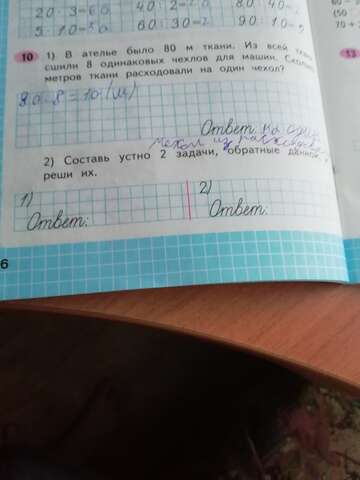 20 · 3 = 60 40 : 2 = 20 80 : 40 =
5 · 10 = 50 60 : 30 = 2 90 : 10 =
10 1) В ателье было 80 м ткани. Из всей
сшили 8 одинаковых чехлов для машин.
метров ткани расходовали на один чехол?
80 : 8 = 10 (м)
Ответ: на один
чехол
2) Составь устно 2 задачи, обратные данной,
реши их.
1) 2)
Ответ: Ответ:
6
13
(50
70 +